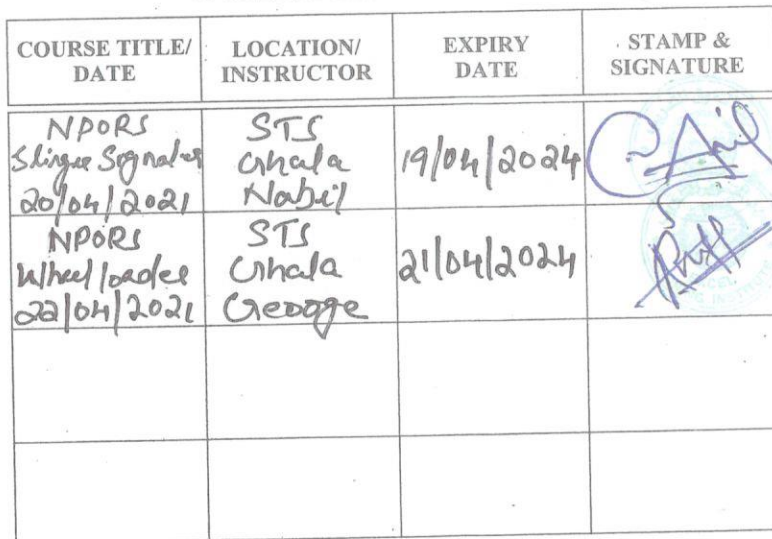 COURSE TITLE/
DATE
LOCATION/
INSTRUCTOR
EXPIRY
DATE
STAMP &
SIGNATURE
NPORS
Slinger Signaler
20/04/2021
STS
Ghala
Nabil
19/04/2024
NPORS
Wheel loader
22/04/2021
STS
Ghala
George
21/04/2024